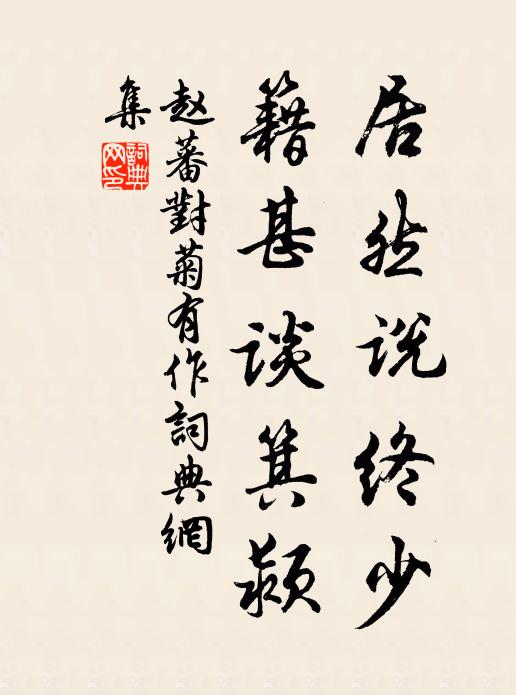 居然说终少
籍甚談箕颍
赵蕃對菊有作詞典網
集
詞典網印